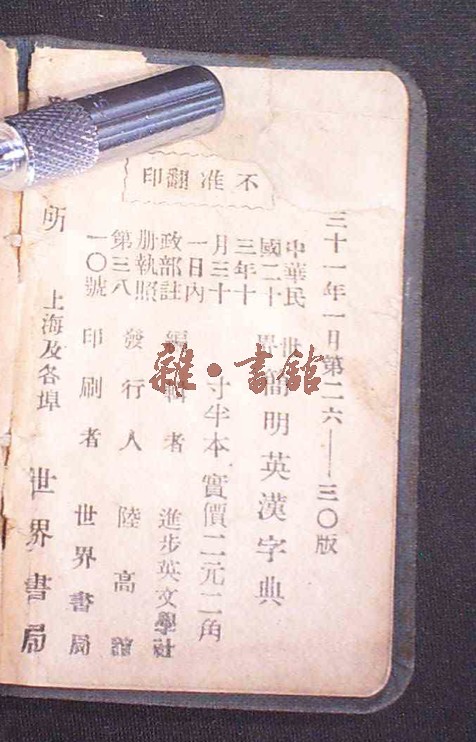 不准翻印
三十一年一月第二六——三〇版
中華民
國二十
三年十
月三十
一日內
政部註
册執照
第三八
一〇號
世界簡明英漢字典
寸半本 實價二元二角
編輯者 進步英文學社
發行人 陸高
印刷者 世界書局
所 上海及各埠 世界書局
雜·書館